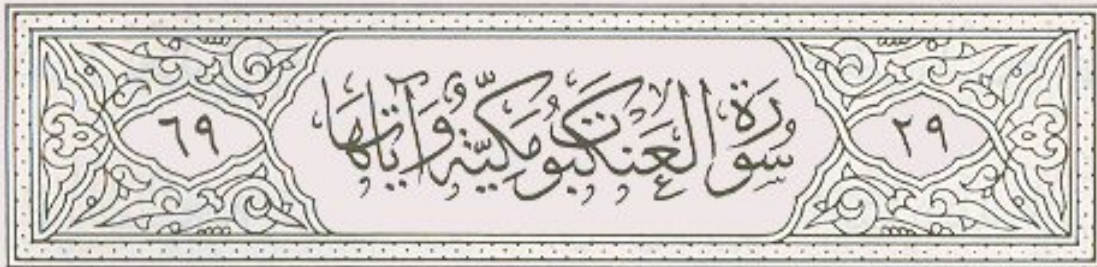 ٢٩ سُورَةُ الْعَنكَبُوتِ مَكِّيَّةٌ وَآيَاتُهَا ٦٩